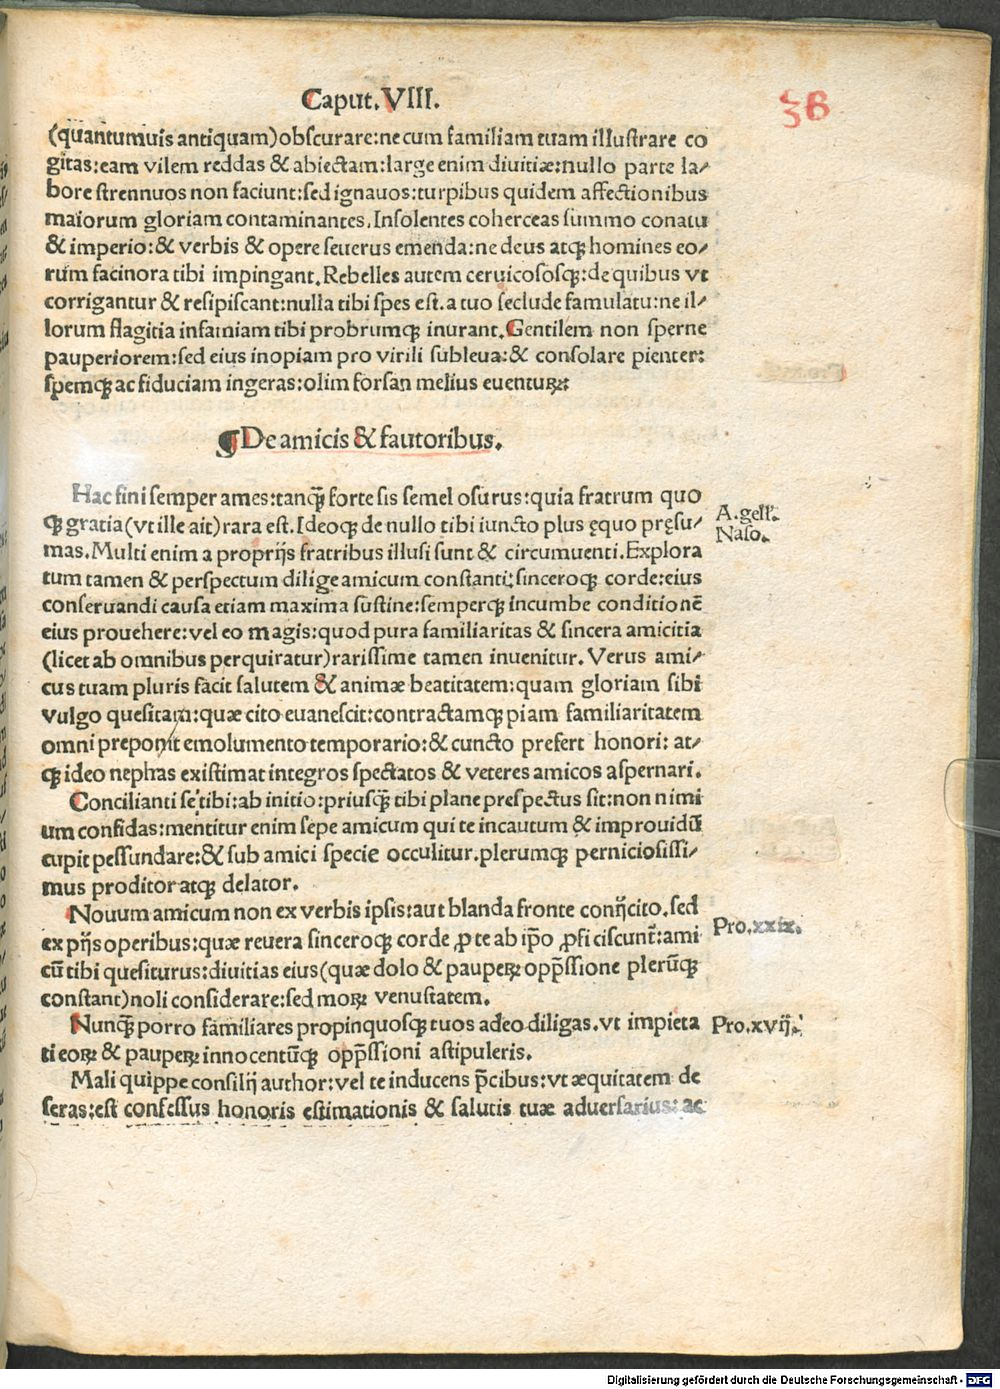 Caput.VIII.
38
(quantumuis antiquam)obscurare:ne cum familiam tuam illustrare co
gitas:eam vilem reddas & abiectam:large enim diuitiæ:nullo parte la⸗
bore strennuos non faciunt:sed ignauos:turpibus quidem affectionibus
maiorum gloriam contaminantes.Insolentes coherceas summo conatu
& imperio:& verbis & opere seuerus emenda:ne deus atqꝫ homines eo⸗
rum facinora tibi impingant.Rebelles autem ceruicososqꝫ:de quibus vt
corrigantur & resipiscant:nulla tibi spes est.a tuo seclude famulatu:ne il⸗
lorum flagitia infamiam tibi probrumqꝫ inurant.Gentilem non sperne
pauperiorem:sed eius inopiam pro virili subleua:& consolare pienter:
spemqꝫ ac fiduciam ingeras:olim forsan melius euentuꝝ:
¶De amicis & fautoribus.
Hac fini semper ames:tanqꝫ̃ forte sis semel osurus:quia fratrum quo
qꝫ gratia(vt ille ait)rara est.Ideoqꝫ de nullo tibi iuncto plus ęquo pręsu⸗
A.gell.
Naso.
mas.Multi enim a proprijs fratribus illusi sunt & circumuenti.Explora
tum tamen & perspectum dilige amicum constanti:sinceroqꝫ corde:eius
conseruandi causa etiam maxima sustine:semperqꝫ incumbe conditionē
eius prouehere:vel eo magis:quod pura familiaritas & sincera amicitia
(licet ab omnibus perquiratur)rarissime tamen inuenitur.Verus ami⸗
cus tuam pluris facit salutem & animæ beatitatem:quam gloriam sibi
vulgo quesitam:quæ cito euanescit:contractamqꝫ piam familiaritatem
omni preponit emolumento temporario:& cuncto prefert honori: at⸗
qꝫ ideo nephas existimat integros spectatos & veteres amicos aspernari.
Concilianti se tibi:ab initio:priusqꝫ̃ tibi plane prespectus sit:non nimi
um confidas:mentitur enim sepe amicum qui te incautum & improuidū
cupit pessundare:& sub amici specie occulitur.plerumqꝫ perniciosissi⸗
mus proditor atqꝫ delator.
Nouum amicum non ex verbis ipsis:aut blanda fronte conijcito.sed
Pro.xxix.
ex pijs operibus:quæ reuera sinceroqꝫ corde ꝓ te ab ip̄o ꝓficiscunt᷑:ami
cū tibi quesiturus:diuitias eius(quæ dolo & paupeꝝ opp̄ssione plerūqꝫ
constant)noli considerare:sed moꝝ venustatem.
Nunqꝫ̃ porro familiares propinquosqꝫ tuos adeo diligas.vt impieta
Pro.xvij.
ti eoꝝ & paupeꝝ innocentūqꝫ opp̄ssioni astipuleris.
Mali quippe consilij author:vel te inducens p̄cibus:vt æquitatem de
seras:est confessus honoris estimationis & salutis tuæ aduersarius: ac
Digitalisierung gefördert durch die Deutsche Forschungsgemeinschaft - DFG